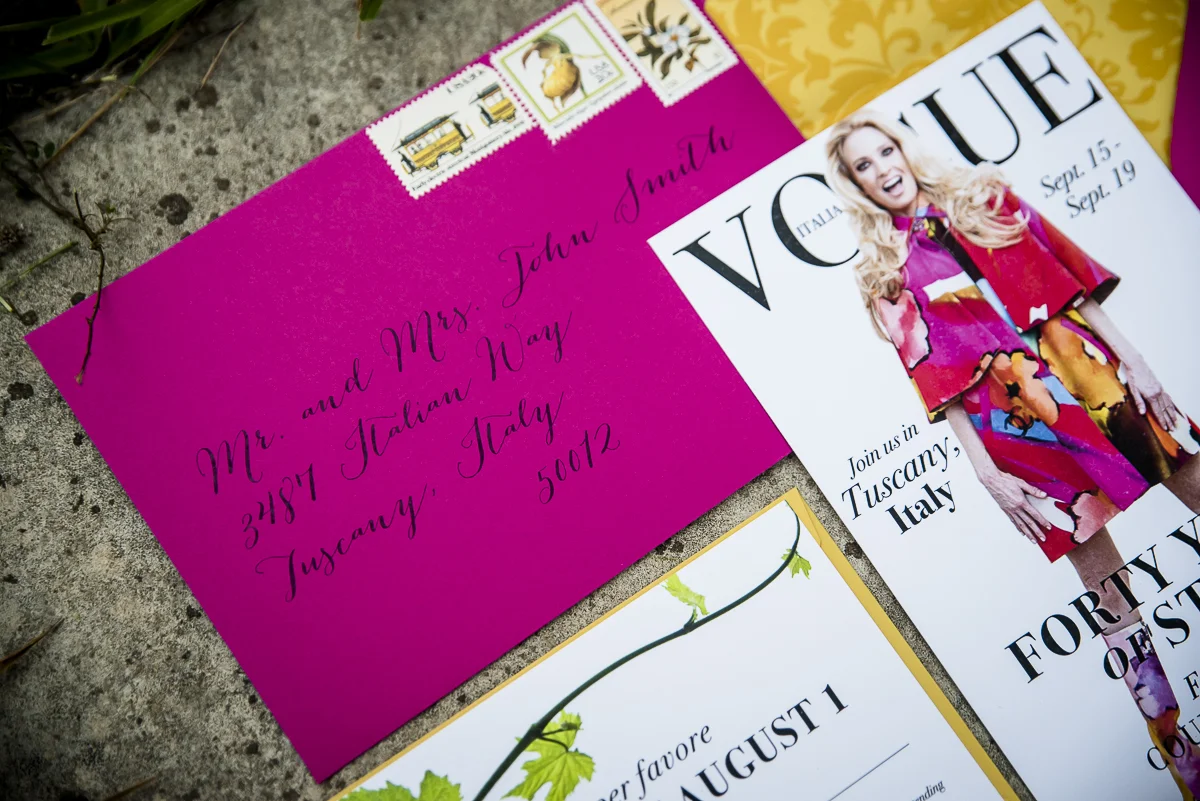 Mr. and Mrs. John Smith
3487 Italian Way
Tuscany, Italy
50012
VOGUE
ITALIA
Sept. 15 -
Sept. 19
Join us in
Tuscany,
Italy
FORTY Y
OF ST
F
COU
per favore
AUGUST 1